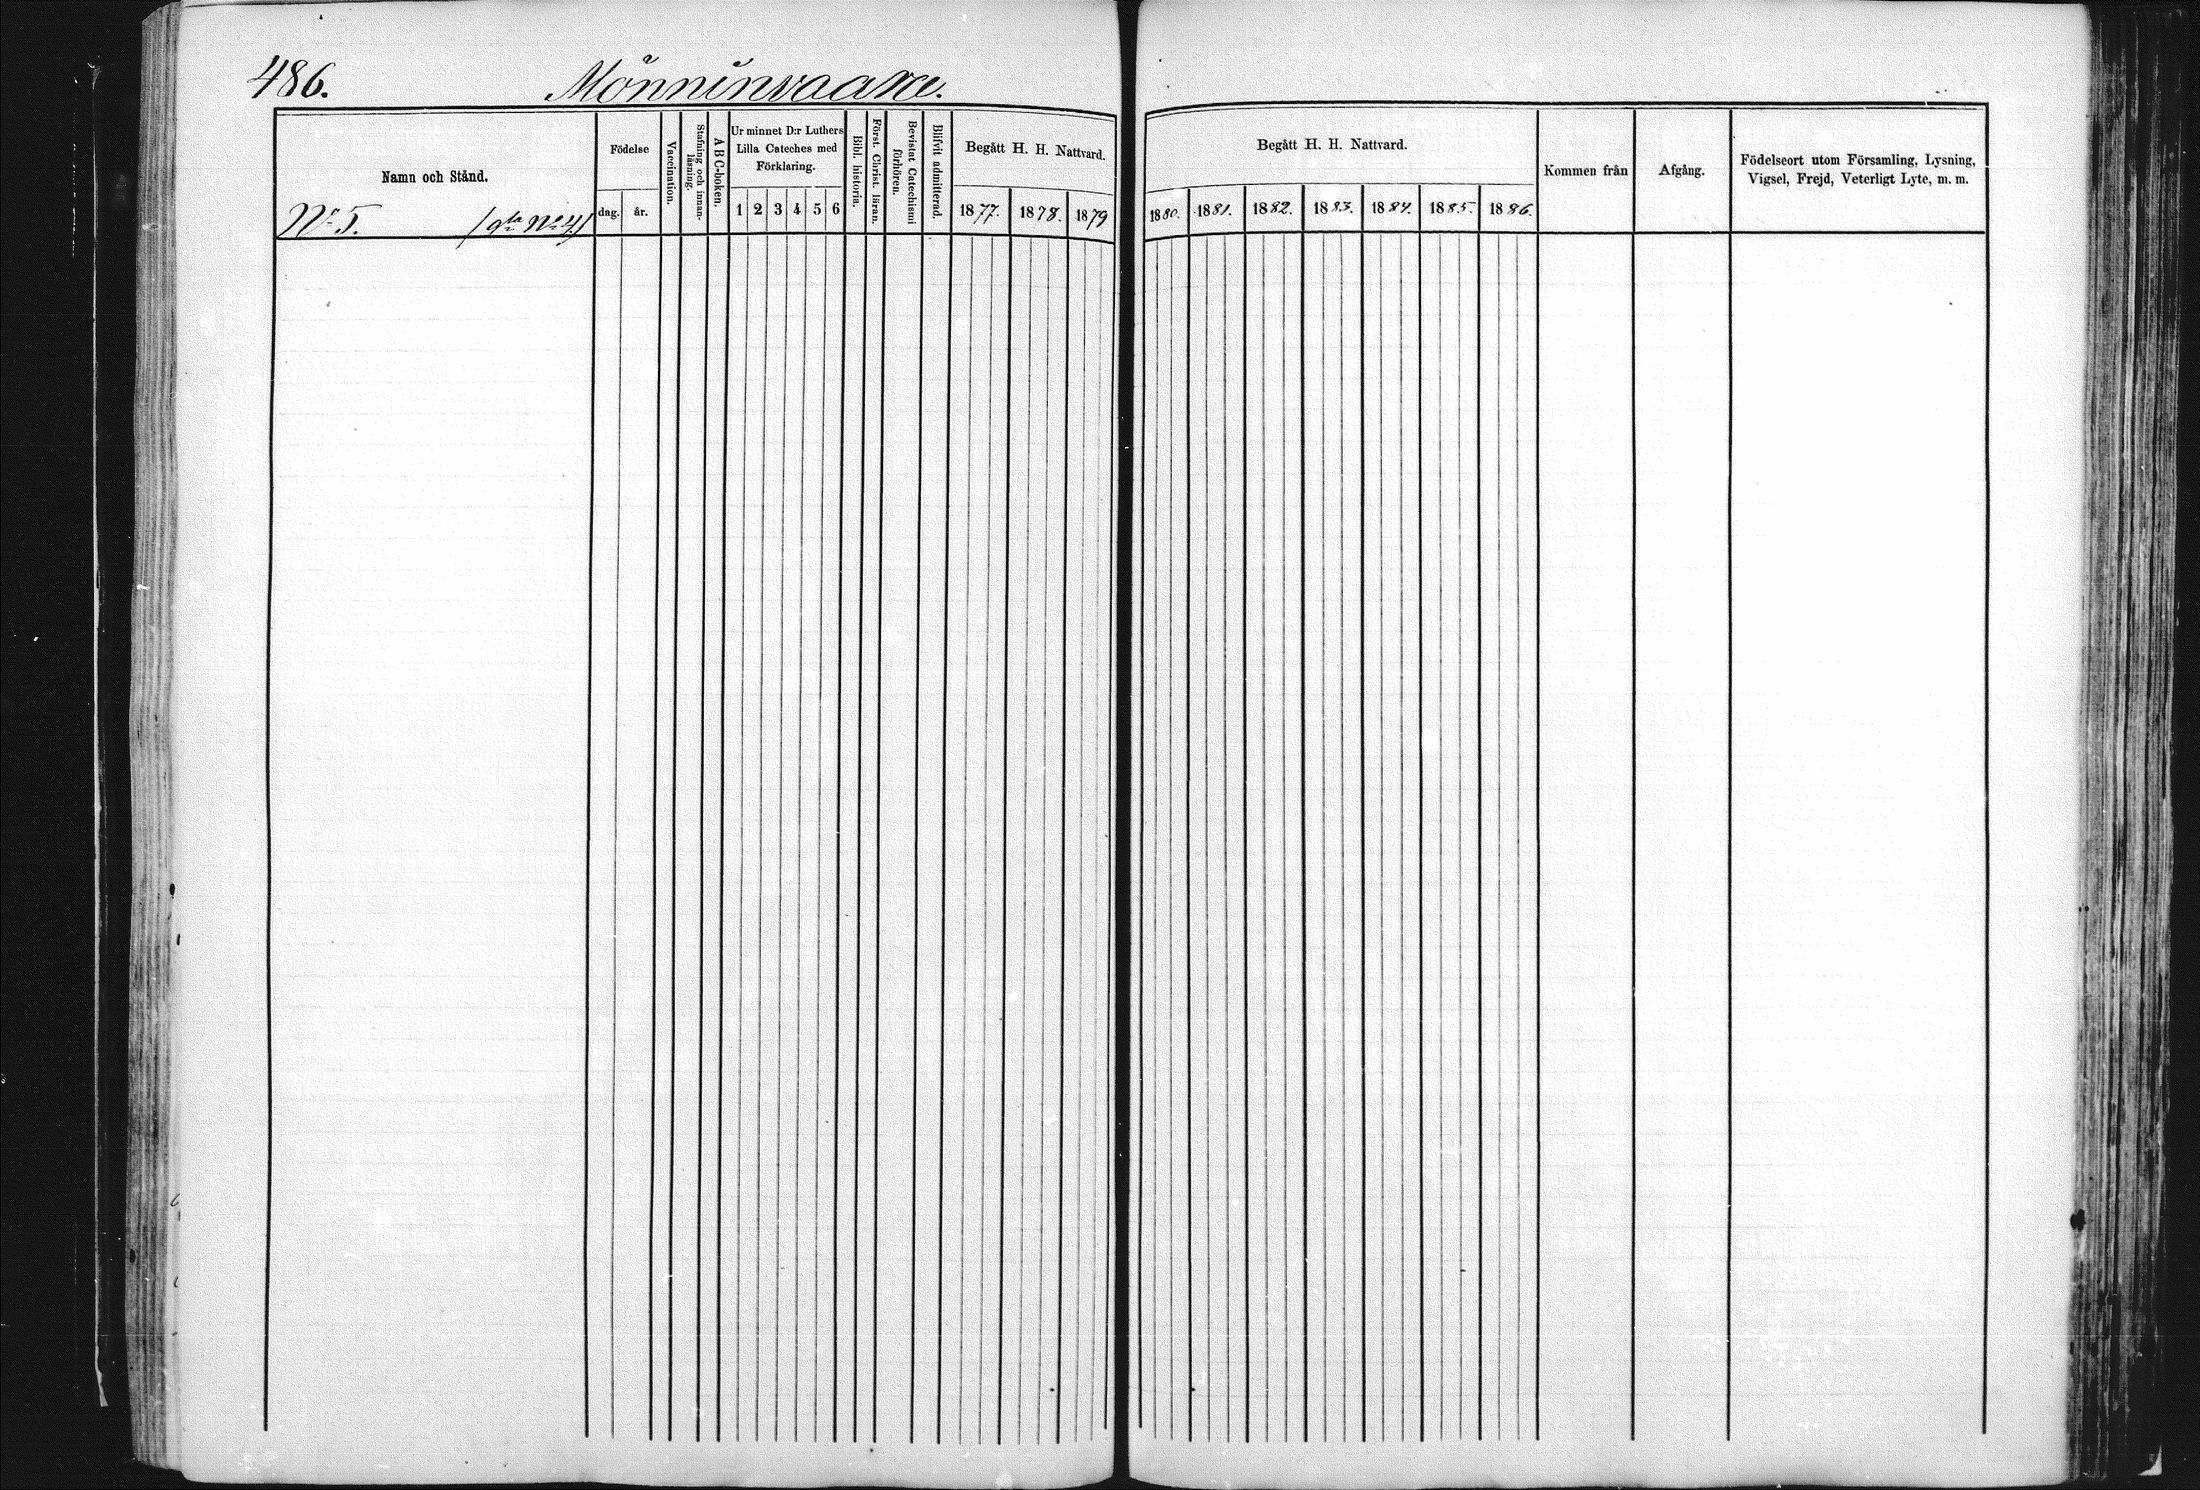 486.
Mönninvaara.
Namn och Stånd.
Nº 5. (gla Nº 4)
Födelse
dag. år.
Vaccination.
Stafning och innan-
läsning.
A B C-boken.
Ur minnet D:r Luthers
Lilla Cateches med
Förklaring.
1 2 3 4 5 6
Bibl. historia.
Först. Christ. läran.
Bevistat Catechismi
förhören.
Blifvit admitterad.
Begått H. H. Nattvard.
1877. 1878. 1879
Begått H. H. Nattvard.
1880. 1881. 1882. 1883. 1884. 1885. 1886.
Kommen från
Afgång.
Födelseort utom Församling, Lysning,
Vigsel, Frejd, Veterligt Lyte, m. m.